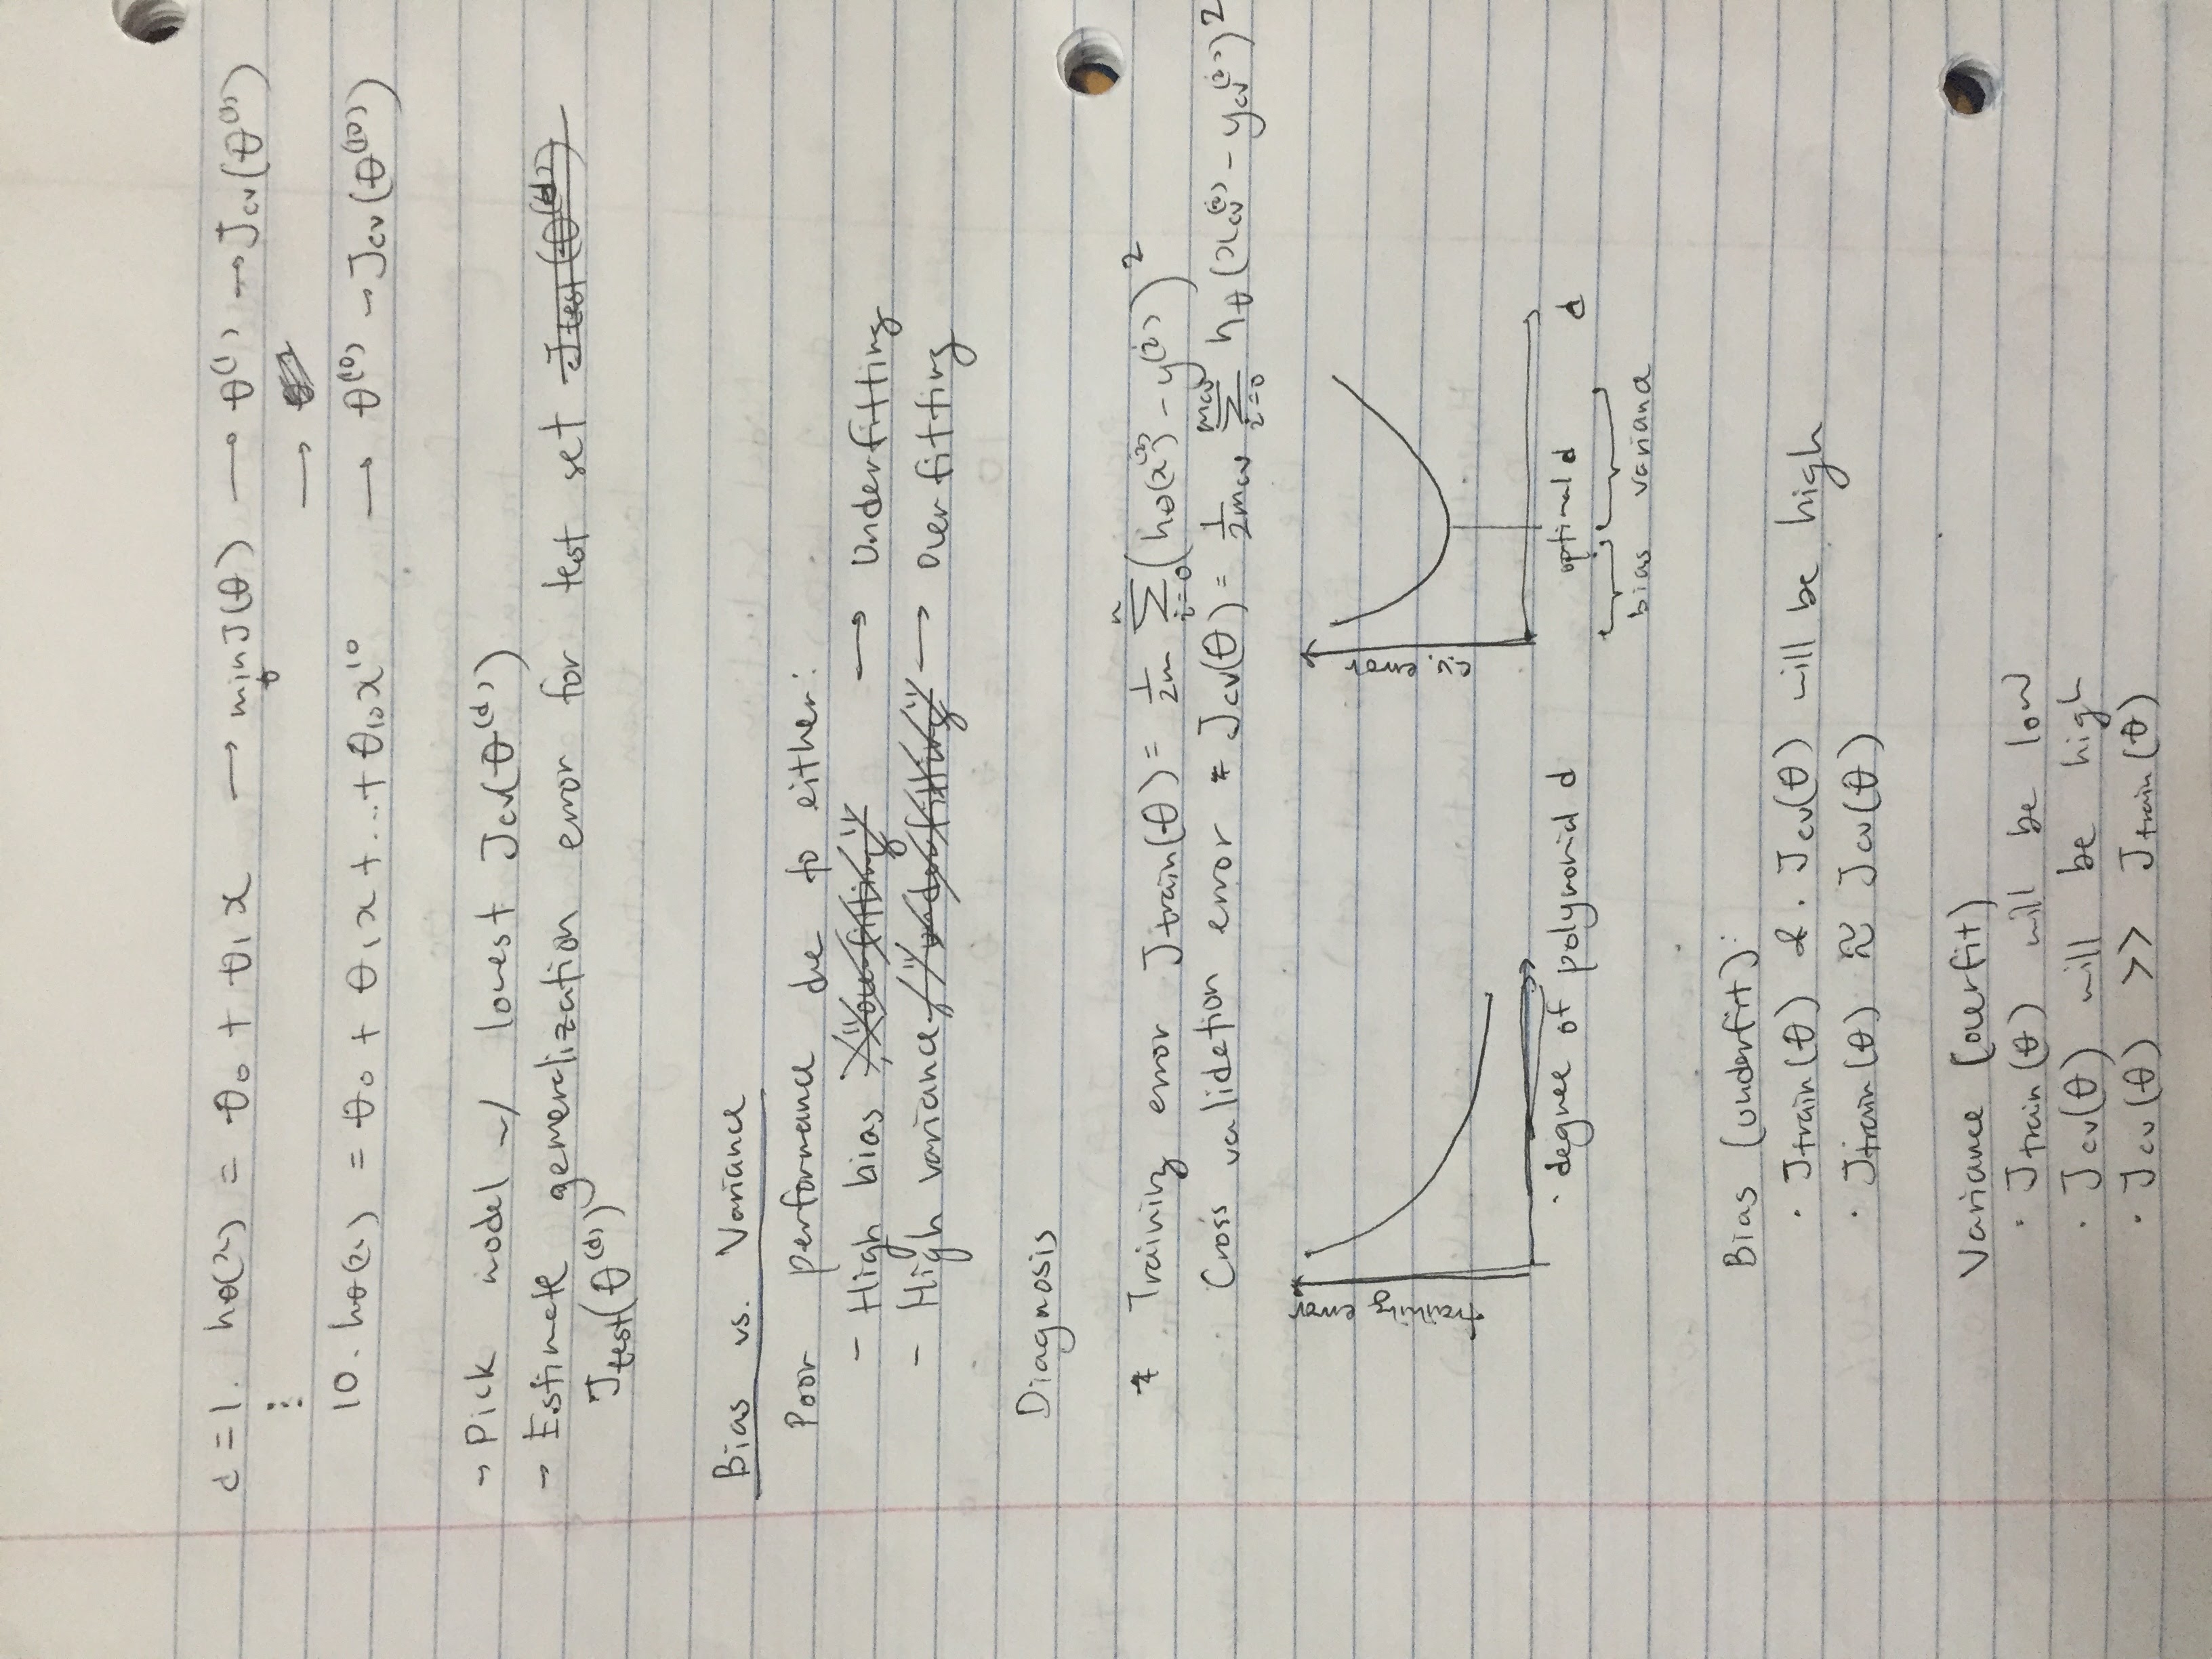 d = 1. hθ(x) = θ₀ + θ₁x → min J(θ) → θ⁽¹⁾ → Jcv(θ⁽¹⁾)
θ
⋮ →
10. hθ(x) = θ₀ + θ₁x + ... + θ₁₀x¹⁰ → θ⁽¹⁰⁾ → Jcv(θ⁽¹⁰⁾)
→ Pick model w/ lowest Jcv(θ⁽ᵈ⁾)
→ Estimate gemeralization error for test set Jtest(θ⁽ᵈ⁾)
Jtest(θ⁽ᵈ⁾)
Bias vs. Variance
Poor performance due to either:
- High bias, "overfitting" → Underfitting
- High variance, "underfitting" → Overfitting
Diagnosis
* Training error Jtrain(θ) = 1/2m Σ i=0 n (hθ(x⁽ⁱ⁾) - y⁽ⁱ⁾)²
Cross validation error * Jcv(θ) = 1/2mcv Σ i=0 mcv hθ(xcv⁽ⁱ⁾ - ycv⁽ⁱ⁾)²
training error
degree of polynomial d
c.v. error
optimal d d
bias variance
Bias (underfit):
· Jtrain(θ) & . Jcv(θ) will be high
· Jtrain(θ) ≈ Jcv(θ)
Variance (overfit)
· Jtrain(θ) will be low
· Jcv(θ) will be high
· Jcv(θ) >> Jtrain(θ)